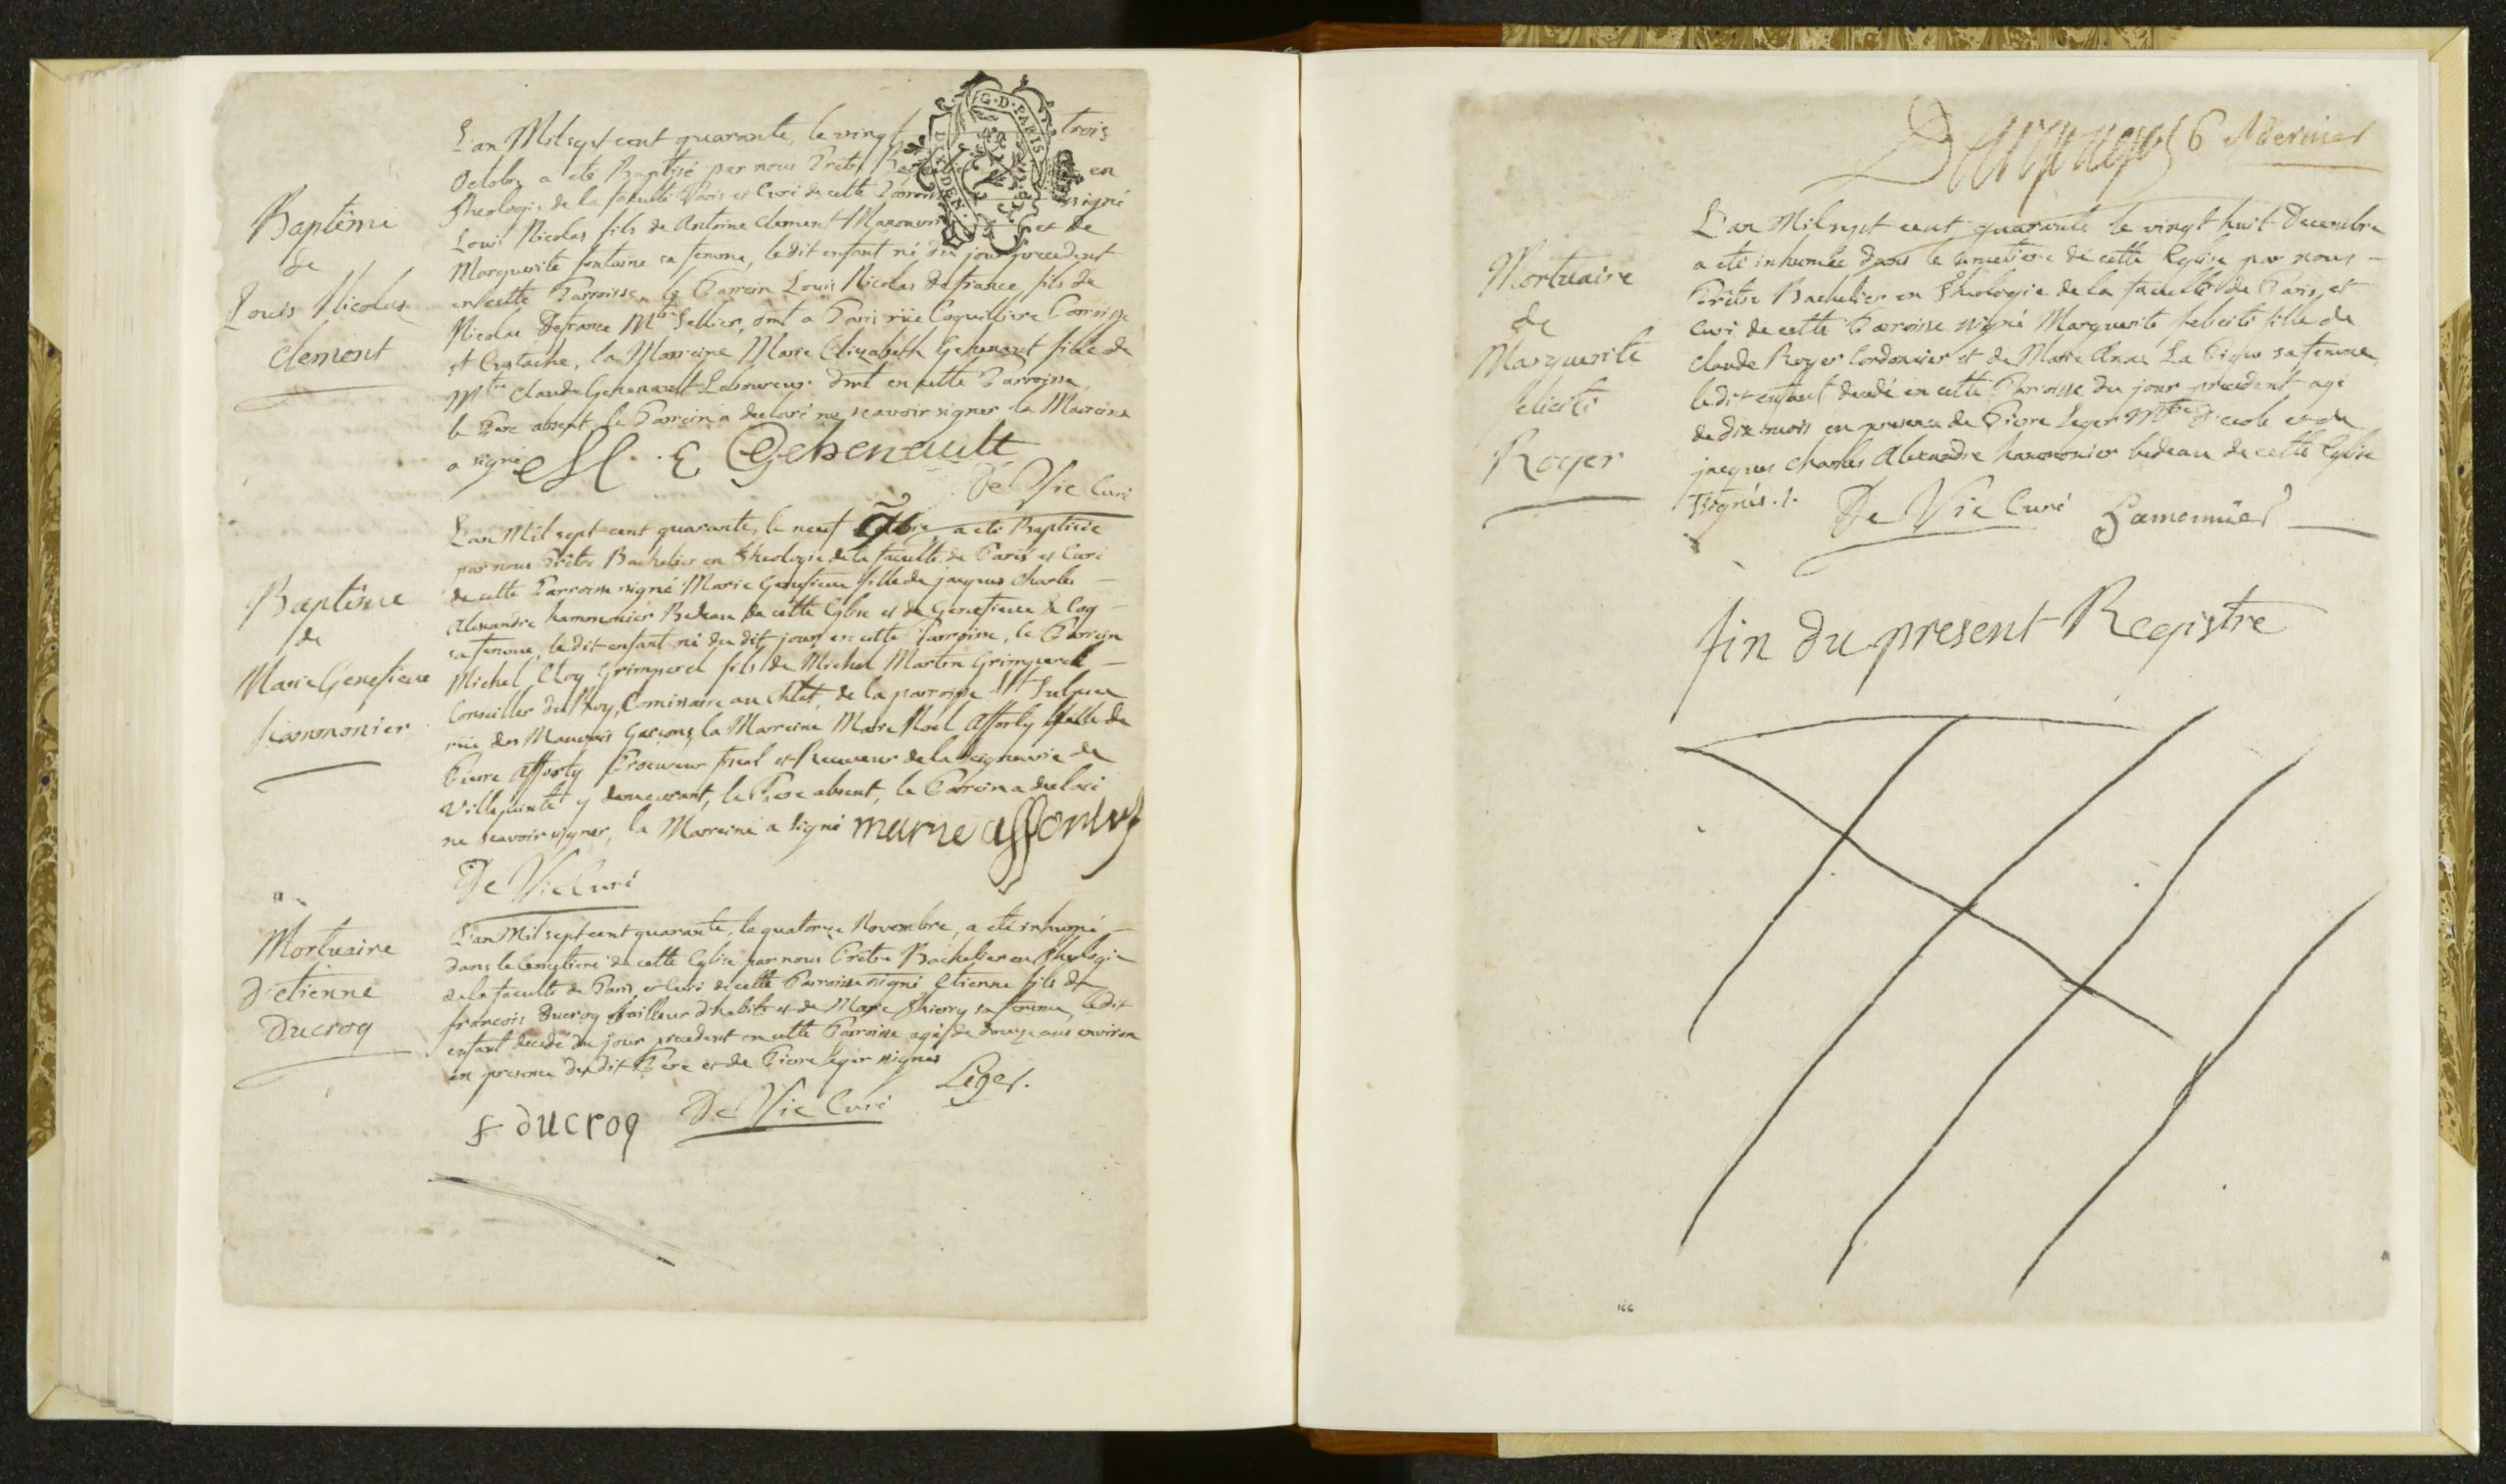 Baptême
de
Louis Nicolas
Clement
G·D·PARIS
DEN·
L'an Mil sept cent quarante, le vingt trois
Octobre a eté Baptisé par nous Prêtre en
Theologie de la faculté Paris et Curé de cette signé
Louis Nicolas fils de Antoine Clement et de
Marguerite fontaine sa femme, le dit enfant né du jour precedent
en cette Parroisse, le Parrein Louis Nicolas Defrance, fils de
Nicolas Defrance Mtre Sellier, dmt a Paris rüe Coquilliere Parroisse
st Eustache, la Marreine Marie Elizabeth Gehenault fille de
Mtre Claude Gehenault Laboureur dmt en cette Parroisse,
le Pere absent, le Parrein a declaré ne sçavoir signer la Marreine
a signé M. E Gehenault
De Vic Curé
Baptême
de
Marie Genefieve
hammonier
L'an Mil sept cent quarante, le neuf 9bre, a eté Baptisée
par nous Prêtre Bachelier en Theologie de la faculté de Paris et Curé
de cette Parroisse signé Marie Genefieve fille de jacques Charles
Alexandre hammonier Bedeau de cette Eglise et de Genefieve Coq
sa femme, le dit enfant né du dit jour en cette Parroisse, le Parrein
Michel Eloy Grimperel fils de Michel Martin Grimperel
Conseiller du Roy, Comissaire au Chlet, de la parroisse St Sulpice
rüe des Mauvais Garçons, la Marreine Marie Noel Afforty fille de
Pierre Afforty Procureur fiscal et Receveur de la Seigneurie de
Villepinte y demeurant, le Pere absent, le Parrein a declaré
ne sçavoir signer, la Marreine a signé marie afforty
De Vic Curé
Mortuaire
d'etienne
Ducroq
L'an Mil sept cent quarante, le quatorze Novembre, a eté inhumé
dans le Cemetiere de cette Eglise par nous Prêtre Bachelier en Theologie
de la faculté de Paris et Curé de cette Parroisse signé Etienne fils de
francois Ducroq tailleur d'habits et de Marie Thierry sa femme, le dit
enfant decedé du jour precedent en cette Parroisse agé de douze ans environ
en presence du dit Pere et de Pierre leger signés
Leger.
f ducroq De Vic Curé
6 & dernier
Mortuaire
de
Marguerite
felicité
Royer
L'an Mil sept cent quarante le vingt huit Decembre
a eté inhumée dans le cemetiere de cette Eglise par nous
Prêtre Bachelier en Theologie de la faculté de Paris, et
Curé de cette Parroisse signé Marguerite felicité fille de
Claude Royer Cordonnier et de Marie Anne La Pique sa femme,
le dit enfant decedé en cette Paroisse du jour precedent agé
de dix mois en presence de Pierre Leger Mtre d'ecole et de
jacques Charles Alexandre hammonier bedeau de cette Eglise
signés.
De Vic Curé hamonnier
fin du present Registre
166